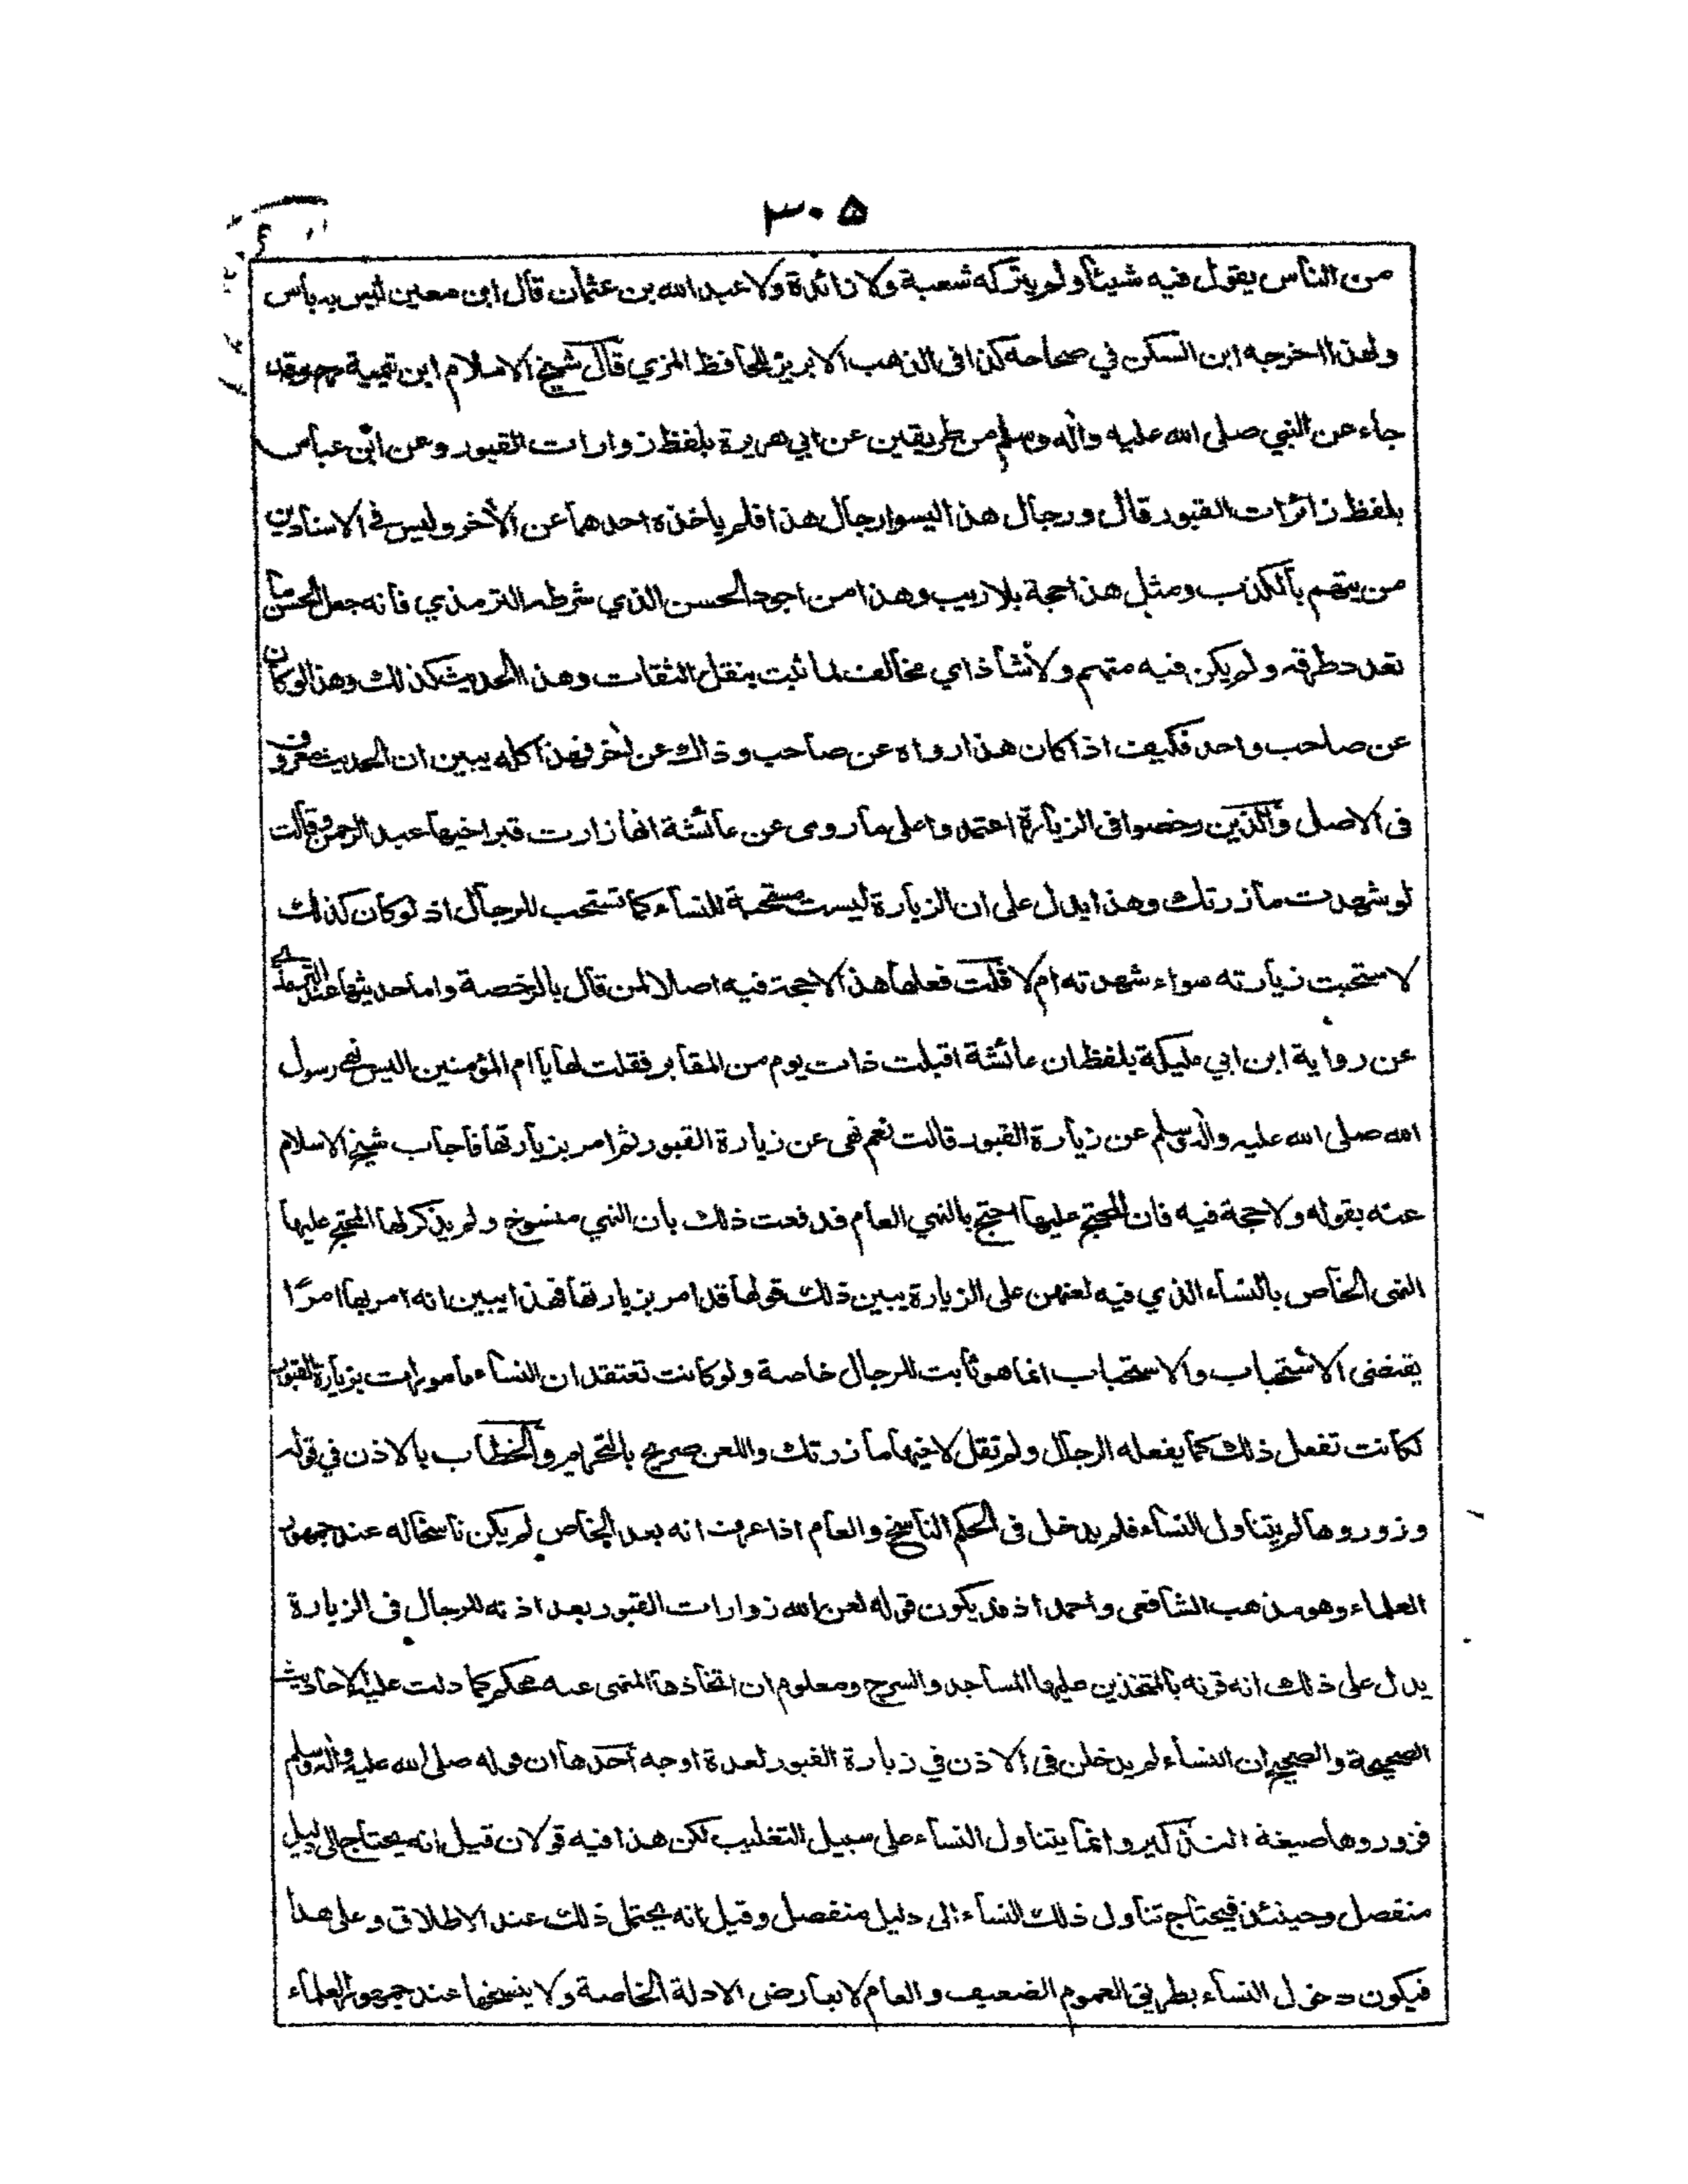 ۳۰۵
من الناس يقول فيه شيئا ولم يتركه شعبة ولا زائدة ولا عبد الله بن عثمان قال ابن معين ليس به بأس
ولهذا اخرجه ابن السكن في صحاحه كذا فى الذهب الابريز للحافظ المزي قال شيخ الاسلام ابن تيمية رح وقد
جاء عن النبي صلى الله عليه وآله وسلم من طريقين عن ابي هريرة بلفظ زوارات القبور وعن ابن عباس
بلفظ زائرات القبور قال ورجال هذا ليسوا رجال هذا فلم ياخذه احدهما عن الآخر وليس في الاسنادين
من يتهم بالكذب ومثل هذا حجة بلا ريب وهذا من اجود الحسن الذي شرطه الترمذي فانه جعل الحسن ما
تعدد طرقه ولم يكن فيه متهم ولا شاذ اي مخالف لما ثبت بنقل الثقات وهذا الحديث كذلك وهذا لو كان
عن صاحب واحد فكيف اذا كان هذا رواه عن صاحب وذاك عن آخر فهذا كله يبين ان الحديث معروف
فى الاصل والذين رخصوا فى الزيارة اعتمدوا على ما روى عن عائشة انها زارت قبر اخيها عبد الرحمن وقالت
لو شهدت ما زرتك وهذا يدل على ان الزيارة ليست مستحبة للنساء كما تستحب للرجال اذ لو كان كذلك
لاستحبت زيارته سواء شهدته ام لا قلت فعلها هذا لا حجة فيه اصلا لمن قال بالرخصة واما حديثها عند الترمذي
عن رواية ابن ابي مليكة بلفظ ان عائشة اقبلت ذات يوم من المقابر فقلت لها يا ام المؤمنين اليس نهى رسول
الله صلى الله عليه وآله وسلم عن زيارة القبور قالت نعم نهى عن زيارة القبور ثم امر بزيارتها فاجاب شيخ الاسلام
عنه بقوله ولا حجة فيه فان المحتج عليها احتج بالنهي العام فدفعت ذلك بان النهي منسوخ ولم يذكر لها المحتج عليها
النهى الخاص بالنساء الذي فيه لعنهن على الزيارة يبين ذلك قولها قد امر بزيارتها فهذا يبين انه امر بها امرًا
يقتضى الاستحباب والاستحباب انما هو ثابت للرجال خاصة ولو كانت تعتقد ان النساء مامورات بزيارة القبور
لكانت تفعل ذلك كما يفعله الرجال ولم تقل لاخيها ما زرتك واللعن صريح بالتحريم والخطاب بالاذن في قوله
وزوروها لم يتناول النساء فلم يدخل فى الحكم الناسخ والعام اذا عرف انه بعد الخاص لم يكن ناسخا له عند جمهور
العلماء وهو مذهب الشافعى واحمد اذ قد يكون قوله لعن الله زوارات القبور بعد اذنه للرجال فى الزيارة
يدل على ذلك انه قرنه بالمتخذين عليها المساجد والسرج ومعلوم ان اتخاذها المنهى عنه محكم كما دلت عليه الاحاديث
الصحيحة والصحيح ان النساء لم يدخلن فى الاذن في زيارة القبور لعدة اوجه أحدها ان قوله صلى الله عليه وآله وسلم
فزوروها صيغة التذكير وانما يتناول النساء على سبيل التغليب لكن هذا فيه قولان قيل انه يحتاج الى دليل
منفصل وحينئذ فيحتاج تناول ذلك النساء الى دليل منفصل وقيل انه يحتمل ذلك عند الاطلاق وعلى هذا
فيكون دخول النساء بطريق العموم الضعيف والعام لا يعارض الادلة الخاصة ولا ينسخها عند جمهور العلماء